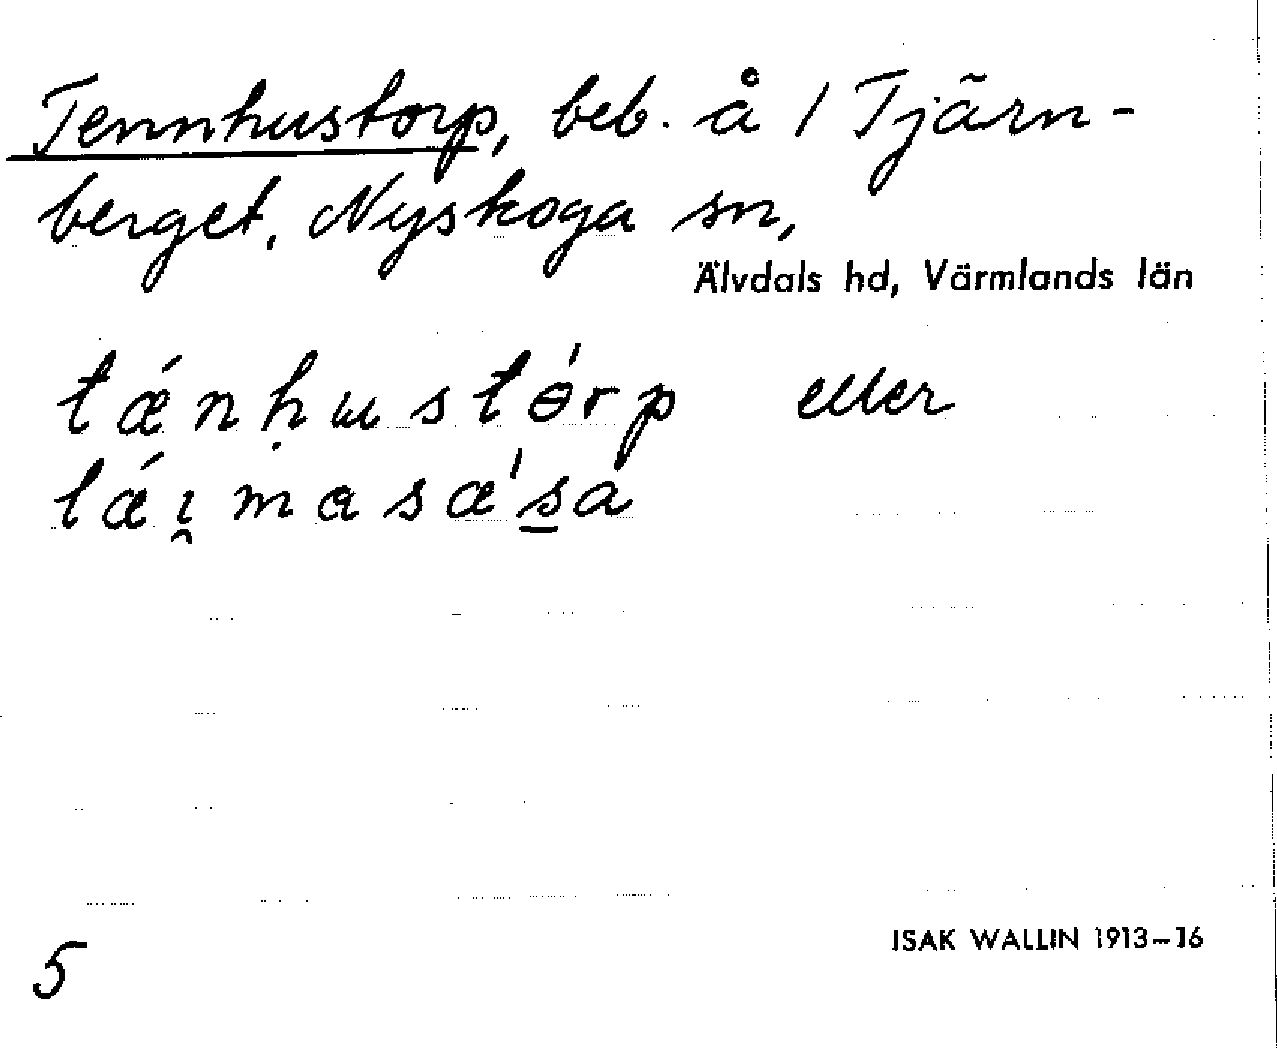 Tennhustorp, beb. å 1 Tjärn-
berget, Nyskoga sn,
Älvdals hd, Värmlands län
tǽnḥɯstɵ́rp eller
lǽı̯masǽs̠a
5
ISAK WALLIN 1913–16